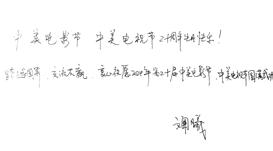 中美电影节 中美电视节二十周年生日快乐!
跨越国界,交流不断,衷心祝愿2024年第二十届中美电影节、中美电视节圆满成功